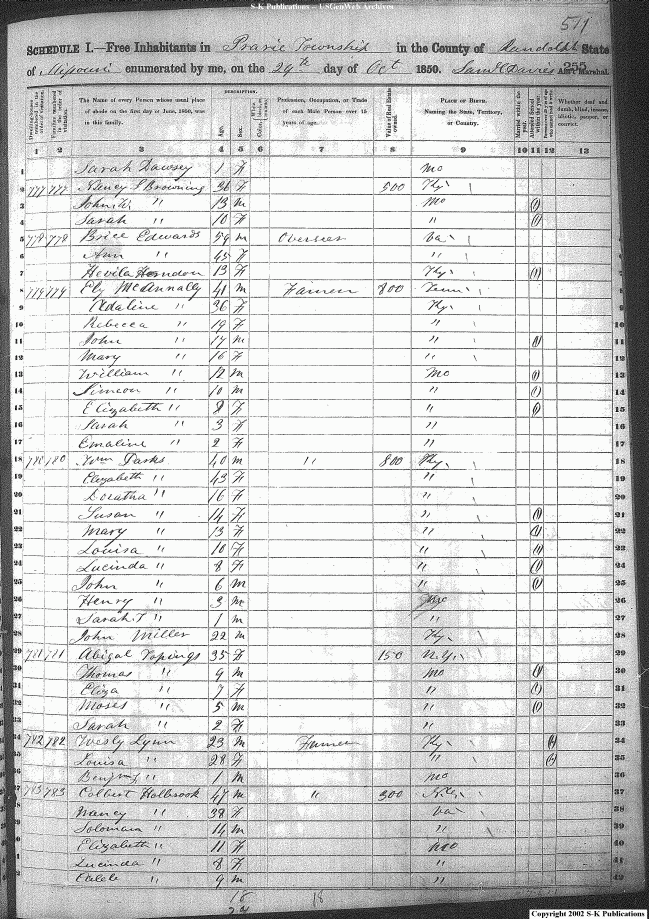 S-K Publications - USGenWeb Archives
511
SCHEDULE I.—Free Inhabitants in Prarie Township in the County of Randolph State
of Missouri enumerated by me, on the 29th day of Oct 1850. Saml C Davis Ass't Marshal.
255
DESCRIPTION.
Dwelling-houses numbered in the order of visitation. Families numbered in the order of visitation. The Name of every Person whose usual place of abode on the first day of June, 1850, was in this family. Age. Sex. Color. Profession, Occupation, or Trade of each Male Person over 15 years of age. Value of Real Estate owned. PLACE OF BIRTH. Naming the State, Territory, or Country. Married within the year. Attended School within the year. Whether deaf and dumb, blind, insane, idiotic, pauper, or convict.
1 2 3 4 5 6 7 8 9 10 11 12 13
1 Sarah Dawsey 1 F Mo
2 777 777 Nancy S Browning 36 F 500 Ky
3 " 13 M Mo 3
4 Sarah " 10 F " 4
5 778 778 Brice Edwards 59 M Overseer Va 5
6 Ann " 45 F " 6
7 Herndon 13 F Ky 7
8 779 779 Ely McAnnally 41 M Farmer 800 Tenn 8
9 Adaline " 36 F Ky 9
10 Rebecca " 19 F " 10
11 John " 17 M " 11
12 Mary " 16 F " 12
13 William " 12 M Mo 13
14 Simeon " 10 M " 14
15 Elizabeth " 8 F " 15
16 Sarah " 3 F " 16
17 Emaline " 2 F " 17
18 780 780 Wm Parks 40 M " 800 Ky 18
19 Elizabeth " 43 F " 19
20 Doratha " 16 F " 20
21 Susan " 14 F " 21
22 Mary " 13 F " 22
23 Louisa " 10 F " 23
24 Lucinda " 8 F " 24
25 John " 6 M " 25
26 Henry " 3 M Mo 26
27 Sarah T " 1 M " 27
28 John Miller 22 M Ky 28
29 781 781 Abigal Topings 35 F 150 N.Y. 29
30 Thomas " 9 M Mo 30
31 Eliza " 7 F " 31
32 Moses " 5 M " 32
33 Sarah " 2 F " 33
34 782 782 Wesly Lynn 23 M Farmer Ky 34
35 Louisa " 28 F " 35
Benjm " 1 M Mo 36
37 783 783 Colbert Holbrook 47 M " 300 37
Nancy " 38 F Va 38
Solomon " 14 M " 39
Elizabeth " 11 F Mo 40
Lucinda " 8 F " 41
Caleb " 9 M " 42
18 18
24
Copyright 2002 S-K Publications